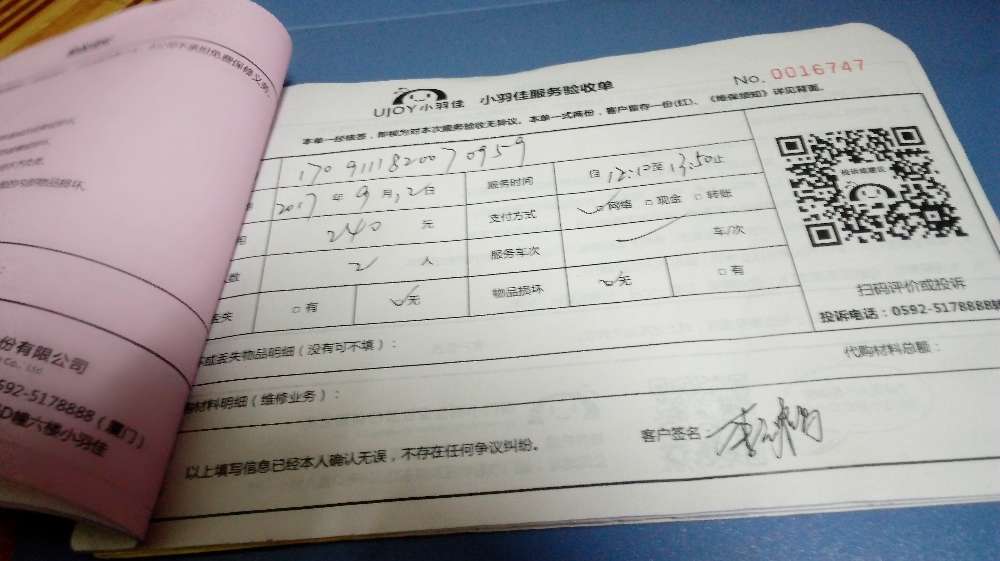 不承担免费保修义务。
物品损坏。
份有限公司
Co., Ltd
592-5178888（厦门）
D幢六楼小羽佳
No. 0016747
UJOY小羽佳 小羽佳服务验收单
本单一经核签，即视为对本次服务验收无异议。本单一式两份，客户留存一份(红)。《维保须知》详见背面。
170911182007 0959
2017 年 9 月 12 日 服务时间 自 12:10至 13:50止
240 元 支付方式 网络 □ 现金 □ 转账
数 2 人 服务车次 车/次
丢失 □ 有 无 物品损坏 无 □ 有
扫码评价或投诉
投诉电话：0592-5178888
或丢失物品明细（没有可不填）：
代购材料总额：
材料明细（维修业务）：
以上填写信息已经本人确认无误，不存在任何争议纠纷。
客户签名：